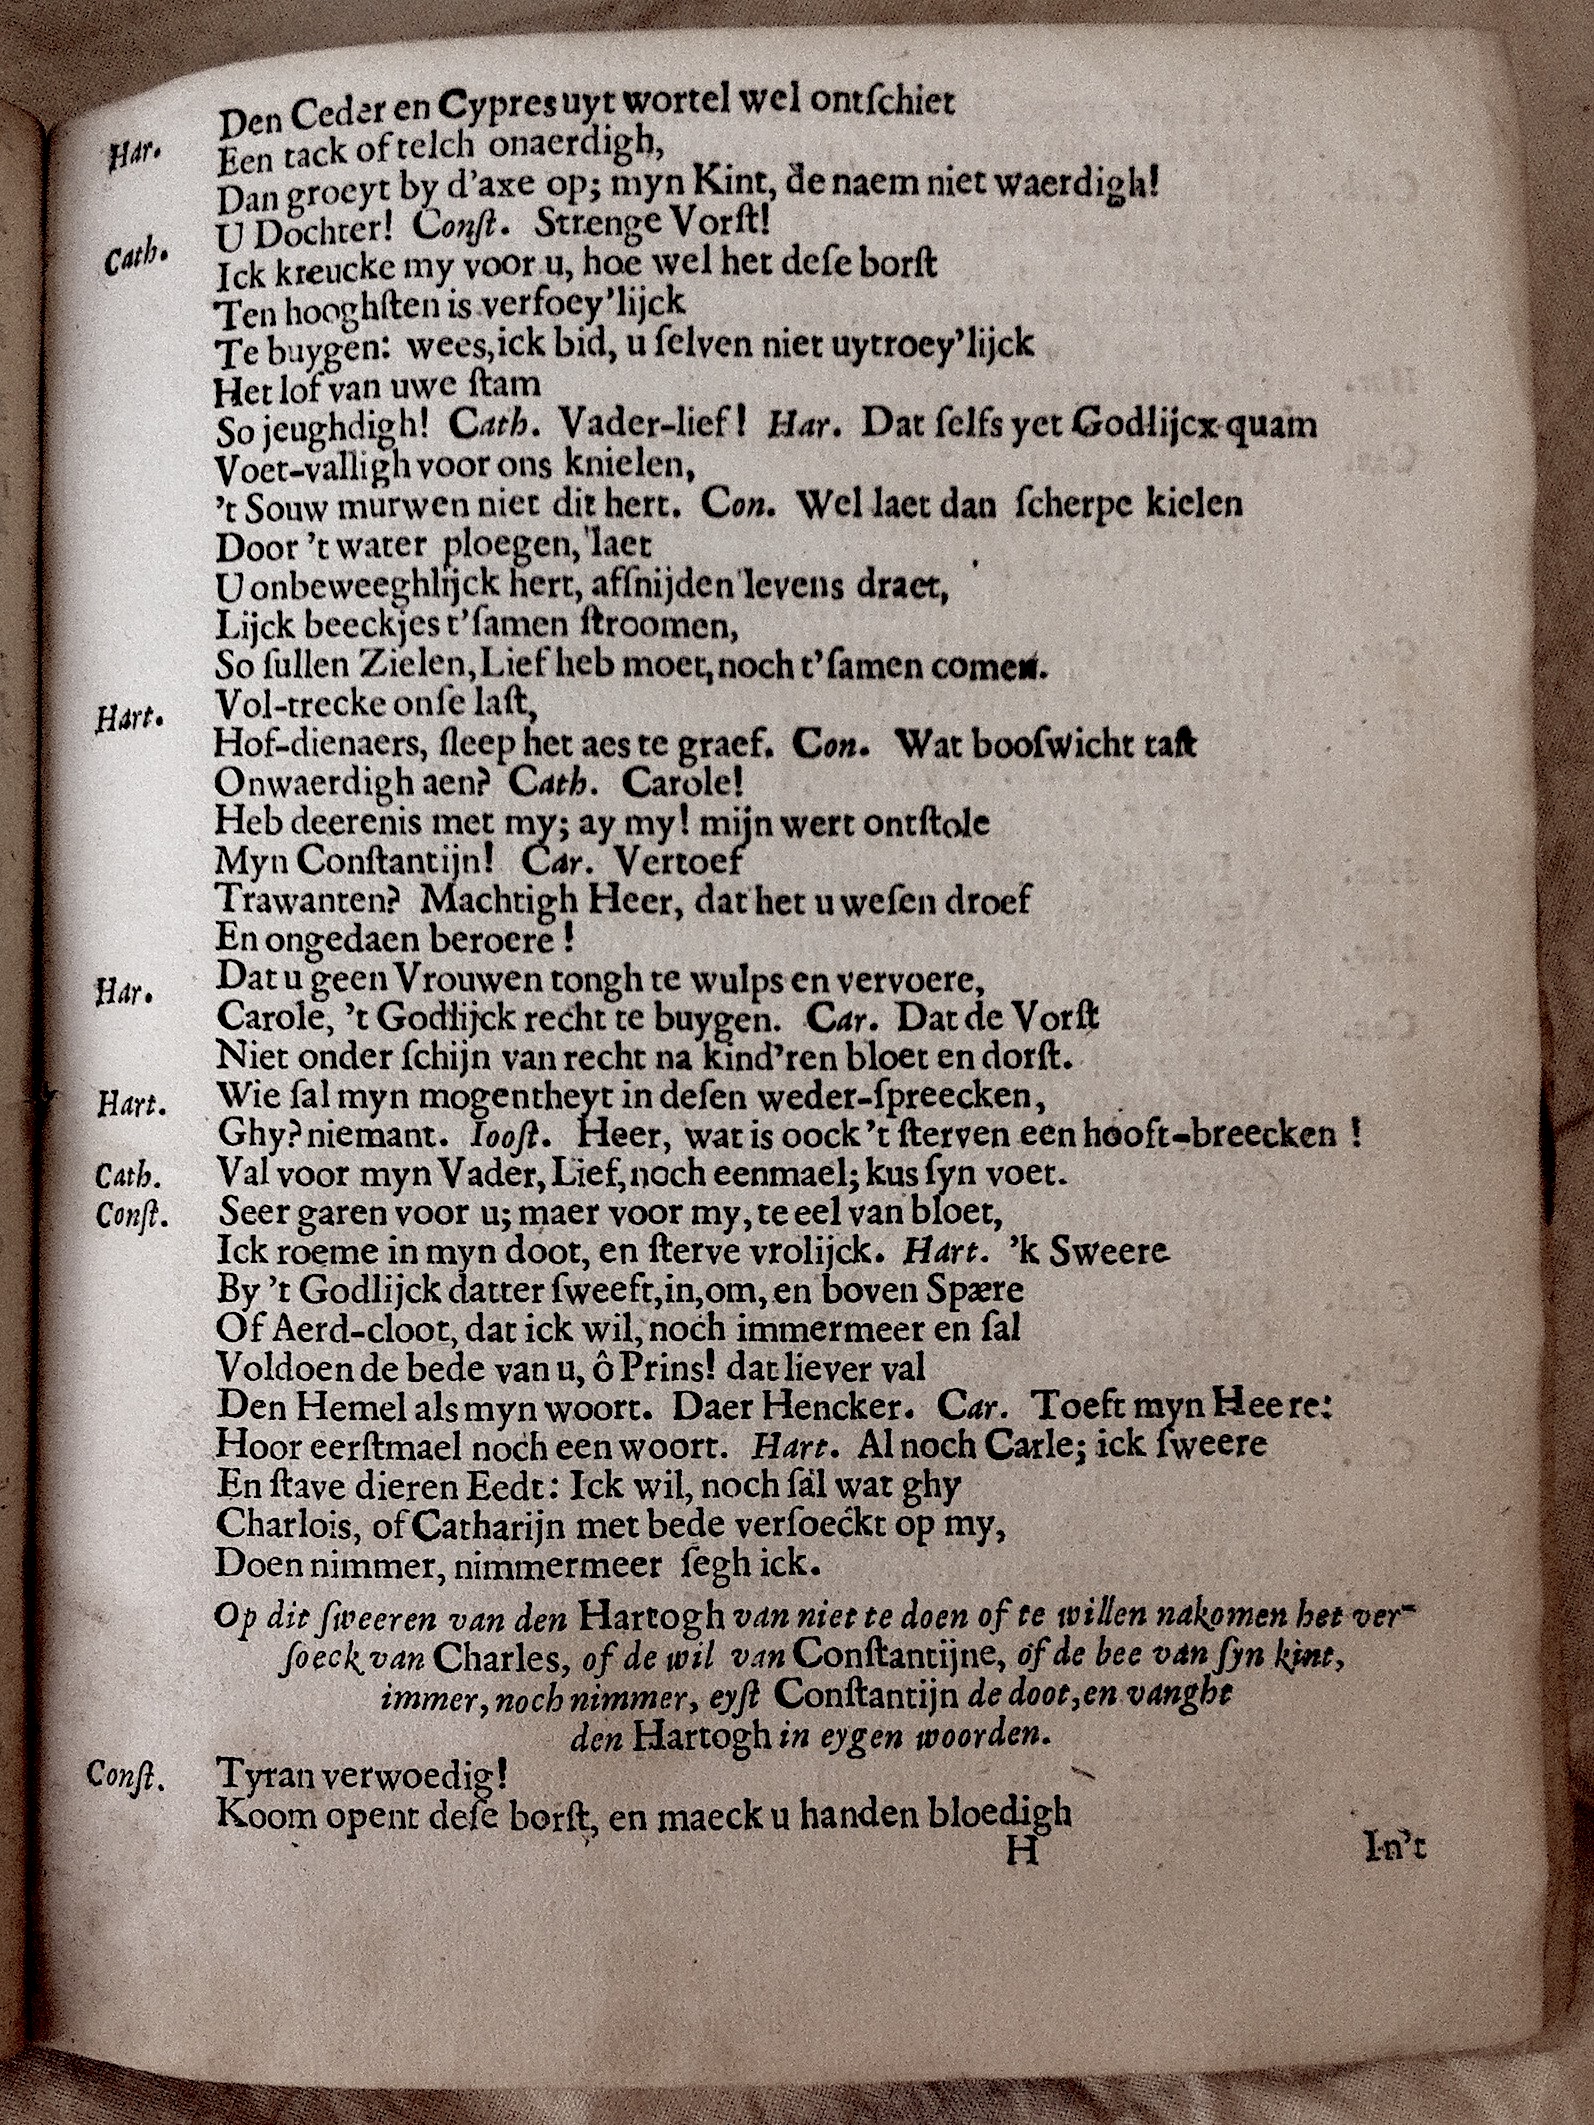 Den Ceder en Cypres uyt wortel wel ontſchiet
Har. Een tack of telch onaerdigh,
Dan groeyt by d'axe op; myn Kint, de naem niet waerdigh!
U Dochter! Conſt. Strenge Vorſt!
Cath. Ick kreucke my voor u, hoe wel het deſe borſt
Ten hooghſten is verfoey'lijck
Te buygen: wees, ick bid, u ſelven niet uytroey'lijck
Het lof van uwe ſtam
So jeughdigh! Cath. Vader-lief! Har. Dat ſelfs yet Godlijcx quam
Voet-valligh voor ons knielen,
't Souw murwen niet dit hert. Con. Wel laet dan ſcherpe kielen
Door 't water ploegen, laet
U onbeweeghlijck hert, afſnijden levens draet,
Lijck beeckjes t'ſamen ſtroomen,
So ſullen Zielen, Lief heb moet, noch t'ſamen comen.
Hart. Vol-trecke onſe laſt,
Hof-dienaers, ſleep het aes te graef. Con. Wat booſwicht taſt
Onwaerdigh aen? Cath. Carole!
Heb deerenis met my; ay my! mijn wert ontſtole
Myn Conſtantijn! Car. Vertoef
Trawanten? Machtigh Heer, dat het u weſen droef
En ongedaen beroere!
Har. Dat u geen Vrouwen tongh te wulps en vervoere,
Carole, 't Godlijck recht te buygen. Car. Dat de Vorſt
Niet onder ſchijn van recht na kind'ren bloet en dorſt.
Hart. Wie ſal myn mogentheyt in deſen weder-ſpreecken,
Ghy? niemant. Iooſt. Heer, wat is oock 't ſterven een hooft-breecken!
Cath. Val voor myn Vader, Lief, noch eenmael; kus ſyn voet.
Conſt. Seer garen voor u; maer voor my, te eel van bloet,
Ick roeme in myn doot, en ſterve vrolijck. Hart. 'k Sweere
By 't Godlijck datter ſweeft, in, om, en boven Spære
Of Aerd-cloot, dat ick wil, noch immermeer en ſal
Voldoen de bede van u, ô Prins! dat liever val
Den Hemel als myn woort. Daer Hencker. Car. Toeft myn Heere:
Hoor eerſtmael noch een woort. Hart. Al noch Carle; ick ſweere
En ſtave dieren Eedt: Ick wil, noch ſal wat ghy
Charlois, of Catharijn met bede verſoeckt op my,
Doen nimmer, nimmermeer ſegh ick.
Op dit ſweeren van den Hartogh van niet te doen of te willen nakomen het ver-
ſoeck van Charles, of de wil van Conſtantijne, of de bee van ſyn kint,
immer, noch nimmer, eyſt Conſtantijn de doot, en vanght
den Hartogh in eygen woorden.
Conſt. Tyran verwoedig!
Koom opent deſe borſt, en maeck u handen bloedigh
H In't